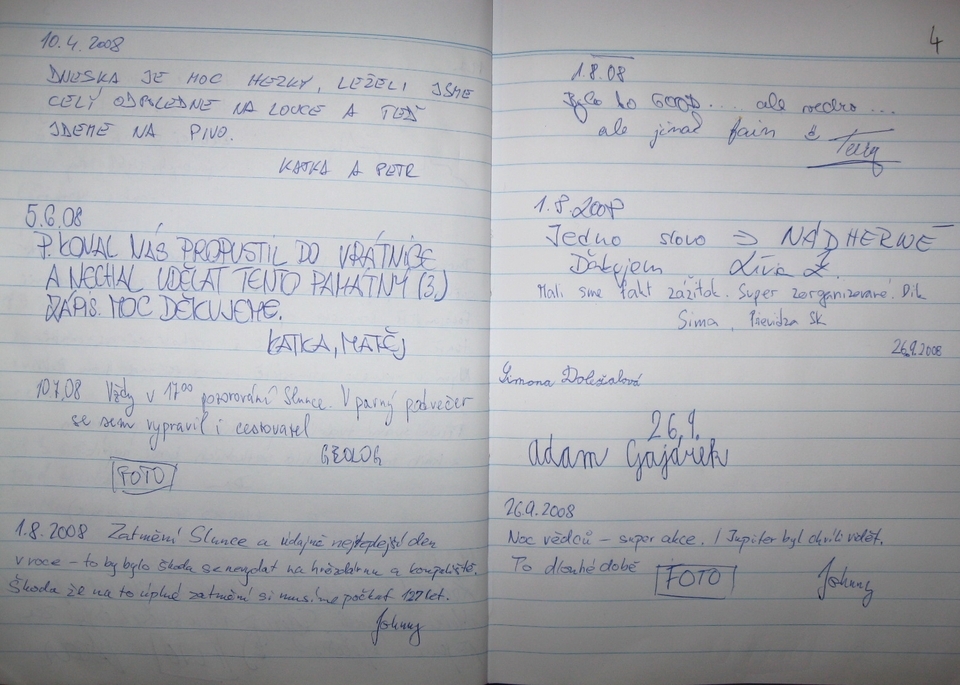 10.4.2008
DNESKA JE MOC HEZKY, LEŽELI JSME
CELÝ ODPOLEDNE NA LOUCE A TEĎ
JDEME NA PIVO.
KATKA A PETR
5.6.08
P. KOVAL NÁS PROPUSTIL DO VRÁTNICE
A NECHAL UDĚLAT TENTO PAMÁTNÝ (3.)
ZÁPIS. MOC DĚKUJEME.
KATKA, MATĚJ
10.7.08 Vždy v 17⁰⁰ pozorování Slunce. V parný podvečer
se sem vypravil i cestovatel
GEOLOG
FOTO
1.8.2008 Zatmění Slunce a údajně nejteplejší den
v roce – to by bylo škoda se nevydat na hvězdárnu a koupaliště.
Škoda že na to úplné zatmění si musíme počkat 127 let.
Johnny
4
1.8.08
Bylo to GOOD... ale vedro...
ale jinak fain
1.8.2008
Jedno slovo ⇒ NÁDHERNÉ
Ďakujem Lívia Ž.
Mali sme fakt zážitok. Super zorganizované. Dík
Sima, Prievidza SK
26.9.2008
Simona Doležalová
26.9.
Adam Gajdarek
26.9.2008
Noc vědců – super akce. I Jupiter byl chvíli vidět.
To dlouhé době
FOTO
Johnny